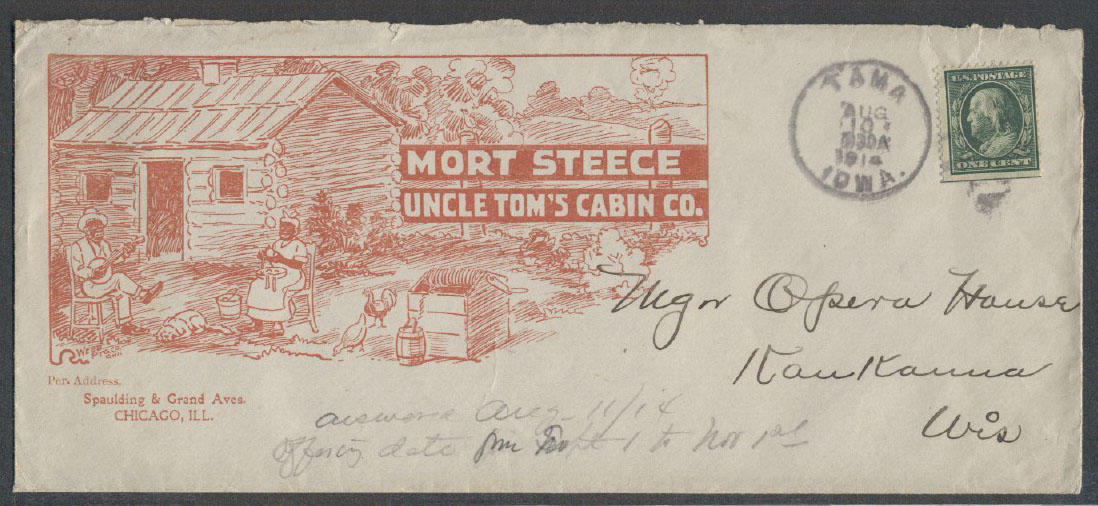 MORT STEECE
UNCLE TOM'S CABIN CO.
Per. Address.
Spaulding & Grand Aves.
CHICAGO, ILL.
TAMA
AUG
10
1914
IOWA.
U.S. POSTAGE
ONE CENT
Mgr Opera House
Kaukauna
Wis
Aug 11/14
date Sept 1 to Nov 1st